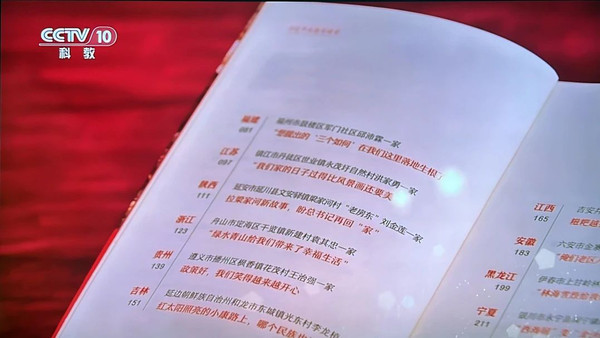 CCTV 10
科教
福建
081
福州市鼓楼区军门社区邱沛霖一家
提出的“三个如何”在我们这里落地生根
江苏
097
镇江市丹徒区世业镇永茂圩自然村洪家勇一家
“我们家的日子过得比风景画还要美
陕西
111
延安市延川县文安驿镇梁家河村“老房东”刘金莲一家
拉梁家河新故事，盼总书记再回“家”
浙江
123
舟山市定海区干览镇新建村袁其忠一家
“绿水青山给我们带来了幸福生活”
贵州
139
遵义市播州区枫香镇花茂村王治强一家
政策好，我们笑得越来越开心
吉林
151
延边朝鲜族自治州和龙市东城镇光东村李龙植
红太阳照亮的小康路上，哪个民族
江西
165
吉安
安徽
183
六安市金寨
“俺们老区
黑龙江
199
伊春市上甘岭
“林海
宁夏
211
银川市永宁